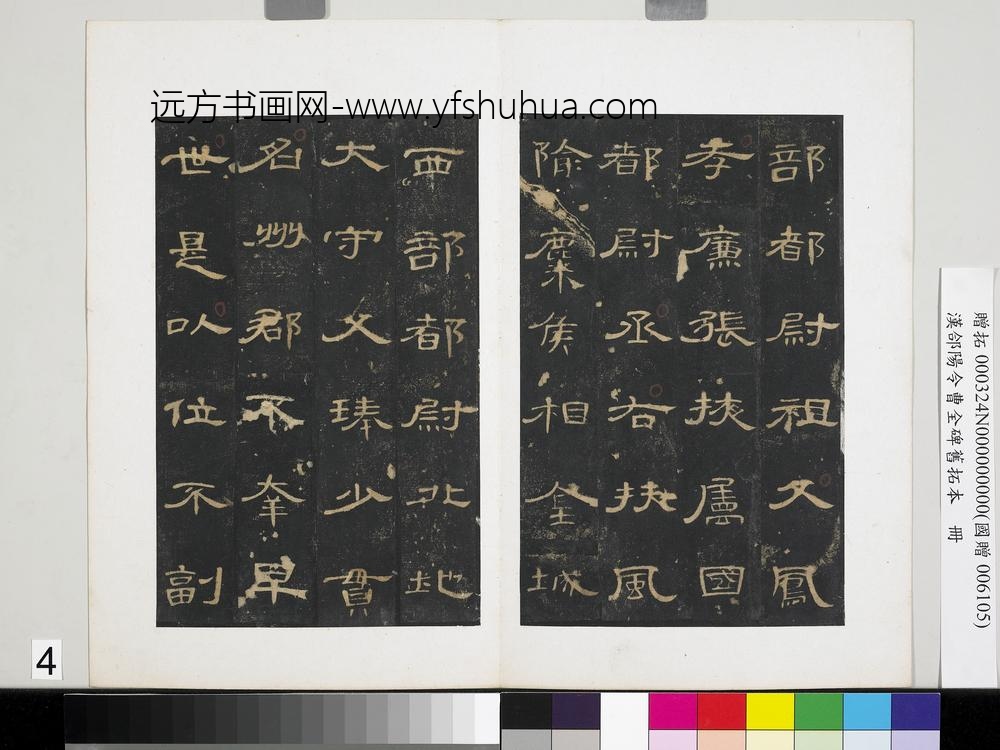 远方书画网-www.yfshuhua.com
部都尉祖父鳳
孝廉張掖屬國
都尉丞右扶風
隃麋侯相金城
西部都尉北地
大守父琫少貫
名州郡不幸早
世是以位不副
贈拓 000324N000000000(國贈 006105)
漢郃陽令曹全碑舊拓本 冊
4